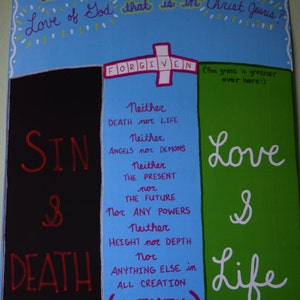 Love of God that is in Christ Jesus?
FORGIVEN
(The grass is greener
over here!)
SIN
&
DEATH
Neither
DEATH nor LIFE
Neither
ANGELS nor DEMONS
Neither
THE PRESENT
nor
THE FUTURE
Nor ANY POWERS
Neither
HEIGHT nor DEPTH
Nor
ANYTHING ELSE in
ALL CREATION
Love
&
Life